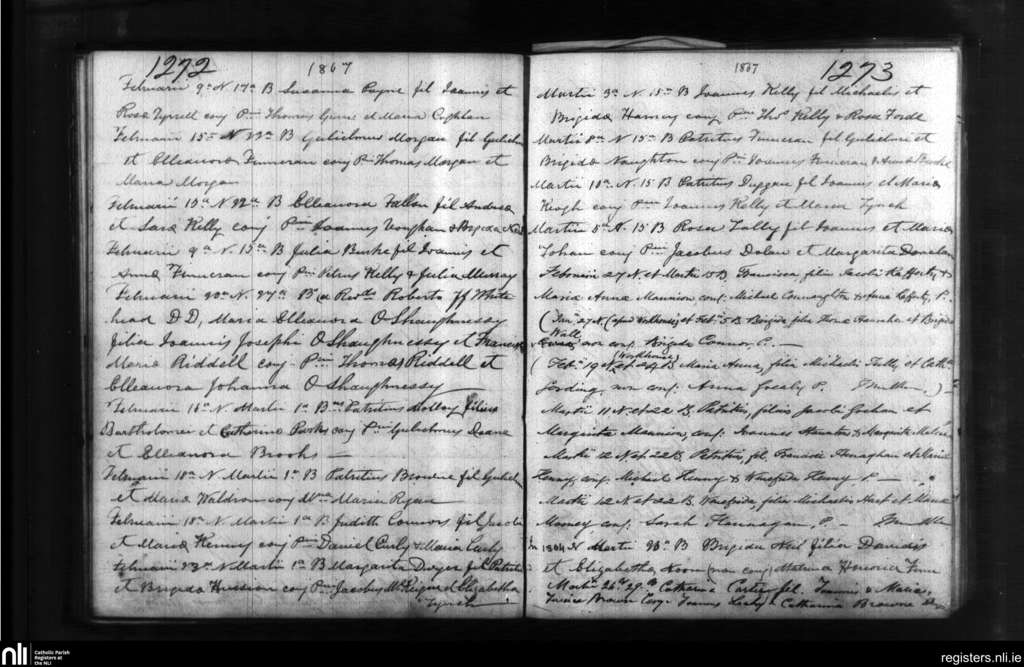 1272
1867
Februarii 9a N. 17a B Susanna Payne fil Joannis et
Rosa Tyrrell conj Pnn Thomas Gunne et Maria Coghlan
Februarii 15a N 23a B Gulielmus Morgan fil Gulielmi
et Elleanora Finneran conj Pnn Thomas Morgan et
Maria Morgan
Februarii 19a N 22a B Elleanora Fallon fil Andrea
et Sara Kelly conj Pnn Joannes Vaughan & Brigida
Februarii 9a N. 15a B Julia Burke fil Joannis et
Anna Finneran conj Pnn Petrus Kelly & Julia Murray
Februarii N. 27a B (a Revdo Roberto White
head D D, Maria Elleanora O Shaughnessy
filia Joannis Josephi O Shaughnessy et Francis
Maria Riddell conj Pnn Thomas Riddell et
Elleanora Johanna O Shaughnessy
Februarii 16a N. Martii 1a B Patritius Molloy filius
Bartholomei et Catharina Parks conj Pnn Gulielmus Deane
et Elleanora Brooks
Februarii 18a N Martii 1a B Patritius Browne fil Gulielmi
et Maria Waldron conj Maria Regan
Februarii 18a N. Martii 1a B Judith Connors fil Jacobi
et Maria Kenny conj Pnn Daniel Curly & Maria Curly
Februarii 23a N Martii 1a B Margarita Dwyer fil Patritii
et Brigida Hussian conj Pnn Jacobus McKeigue et Elizabetha
Lynch
1867
1273
Martii 3a N. 15a B Joannes Kelly fil Michaelis et
Brigida Harney conj Pnn Thos Kelly & Rosa Forde
Martii 8a N 15a B Patritius Finneran fil Gulielmi et
Brigida Naughton conj Pnn Joannes Finneran & Anna Burke
Martii 10a N. 15 B Patritius Duggan fil Joannis et Maria
Keogh conj Pnn Joannes Kelly et Maria Lynch
Martii 5a N. 15 B Rosa Lally fil Joannis et Maria
Johan conj Pnn Jacobus Dolan et Margarita Donelan
Februarii 27 N. et Martii 15 B. Francisca filia Jacobi Rafferty, &
Maria Anna Mannion, conj. Michael Connaughton & Anna Rafferty, P.
(Jan. 27 N. (apud Workhouse) et Feb. 5 B Brigida filia Thoma Hanrahan et Brigida
Wall
non conj Brigida Connor, P.
(Workhouse)
(Feb. 19 N. et 24 B Maria Anna, filia Michaelis Tully et Cath.
Jording non conj. Anna Grealy P.
Martii 11 N. et 22 B. Patritius, filius Jacobi Geehan et
Margarita Mannion, conj. Joannes & Margarita
Martii 12 N et 22 B. Patritius, fil. Francisci Heneghan et Maria
Henry conj. Michael Henry & Winefrida Henry P.
Martii 12 N. et 22 B. Winefrida, filia Michaelis Hurt et Maria
Mooney conj. Sarah Flannagan, P.
In 1864 N Martii 20a B Brigida Neil filia Davidis
et Elizabetha Noon (non conj) Matrina Honoria Finn
Martii 26th 29th Catharina Carter fil Joannis & Maria
Browne Conj. Joannes Leahy & Catharina Browne
nli
Catholic Parish
Registers at
the NLI
registers.nli.ie